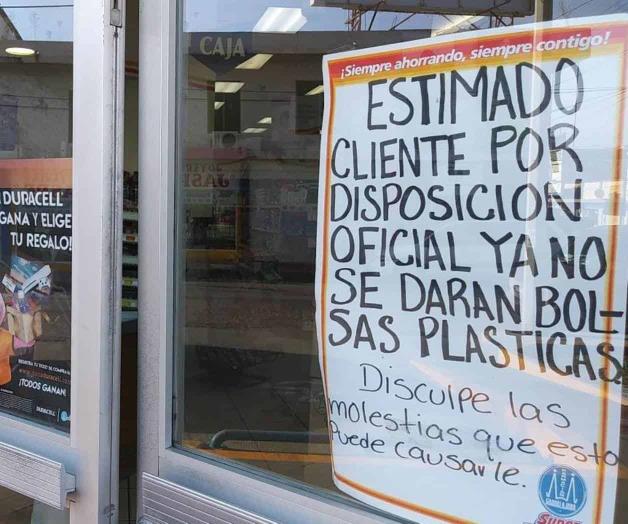 CAJA
¡Siempre ahorrando, siempre contigo!
ESTIMADO
CLIENTE POR
DISPOSICION
OFICIAL YA NO
SE DARAN BOL-
SAS PLASTICAS
Disculpe las
molestias que esto
Puede causarle.
DURACELL
GANA Y ELIGE
TU REGALO!
¡TODOS GANAN!
DURACELL